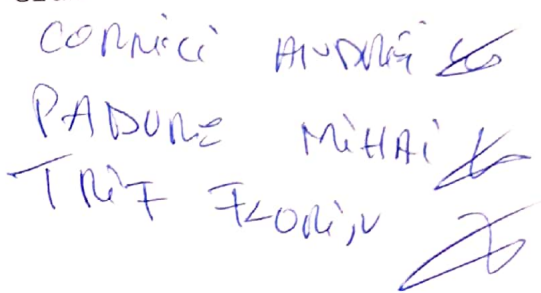 CORNiCi ANDREi
PADURE MiHAi
TRiF FLORiN